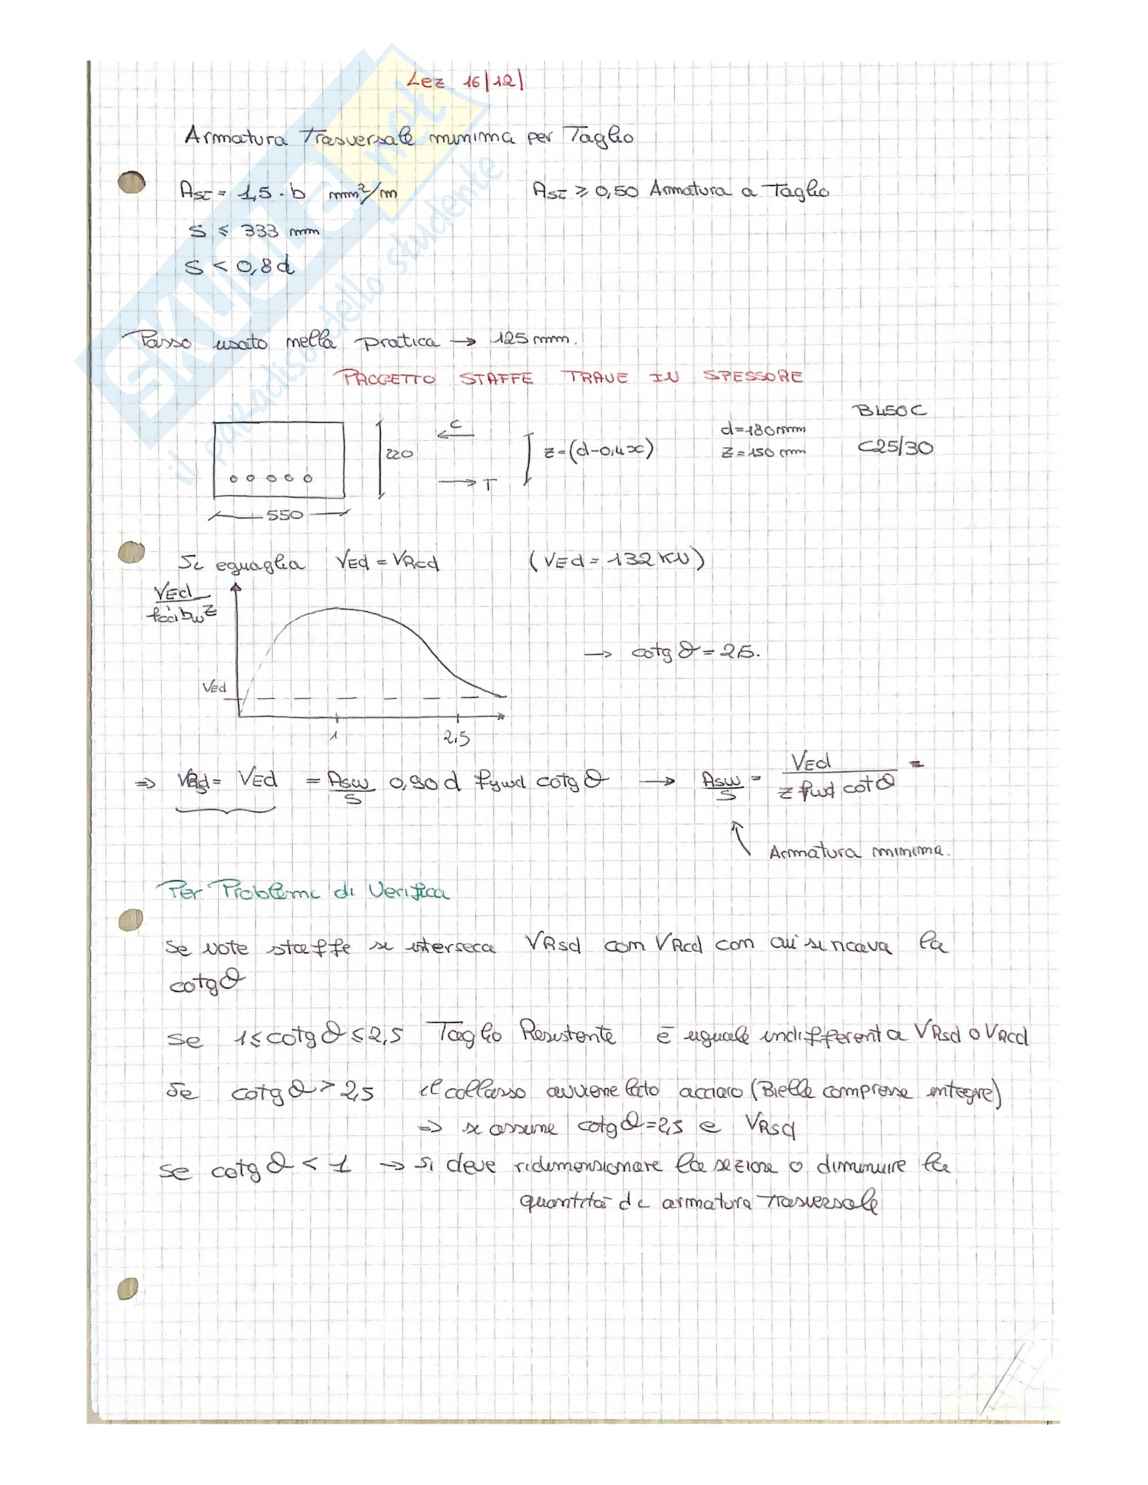 Lez 16/12/
Armatura Trasversale minima per Taglio
Ast = 1,5 · b mm²/m    Ast ≥ 0,50 Armatura a Taglio
S ≤ 333 mm
S < 0,8d
Passo usato nella pratica → 125 mm.
PROGETTO STAFFE TRAVE IN SPESSORE
B450C
C25/30
d=180mm
z=150 mm
z=(d-0,4x)
C
T
220
550
Si eguaglia VEd = VRcd    (VEd = 132 KN)
VEd
bw z
→ cotgθ = 2,5.
VEd
1    2,5
⇒ VEd = Asw/s 0,90 d fywd cotgθ → Asw/s = VEd / z fwd cotθ =
Armatura minima.
Per Problemi di Verifica
Se note staffe si interseca VRsd con VRcd con cui si ricava la
cotgθ
Se 1≤cotgθ≤2,5 Taglio Resistente è uguale indifferent a VRsd o VRcd
Se cotgθ > 2,5 il collasso avviene lato acciaio (Bielle compresse integre)
⇒ si assume cotgθ=2,5 e VRsd
Se cotgθ < 1 → si deve ridimensionare la sezione o diminuire la
quantità di armatura trasversale
SKUOLA.net
il paradiso dello studente